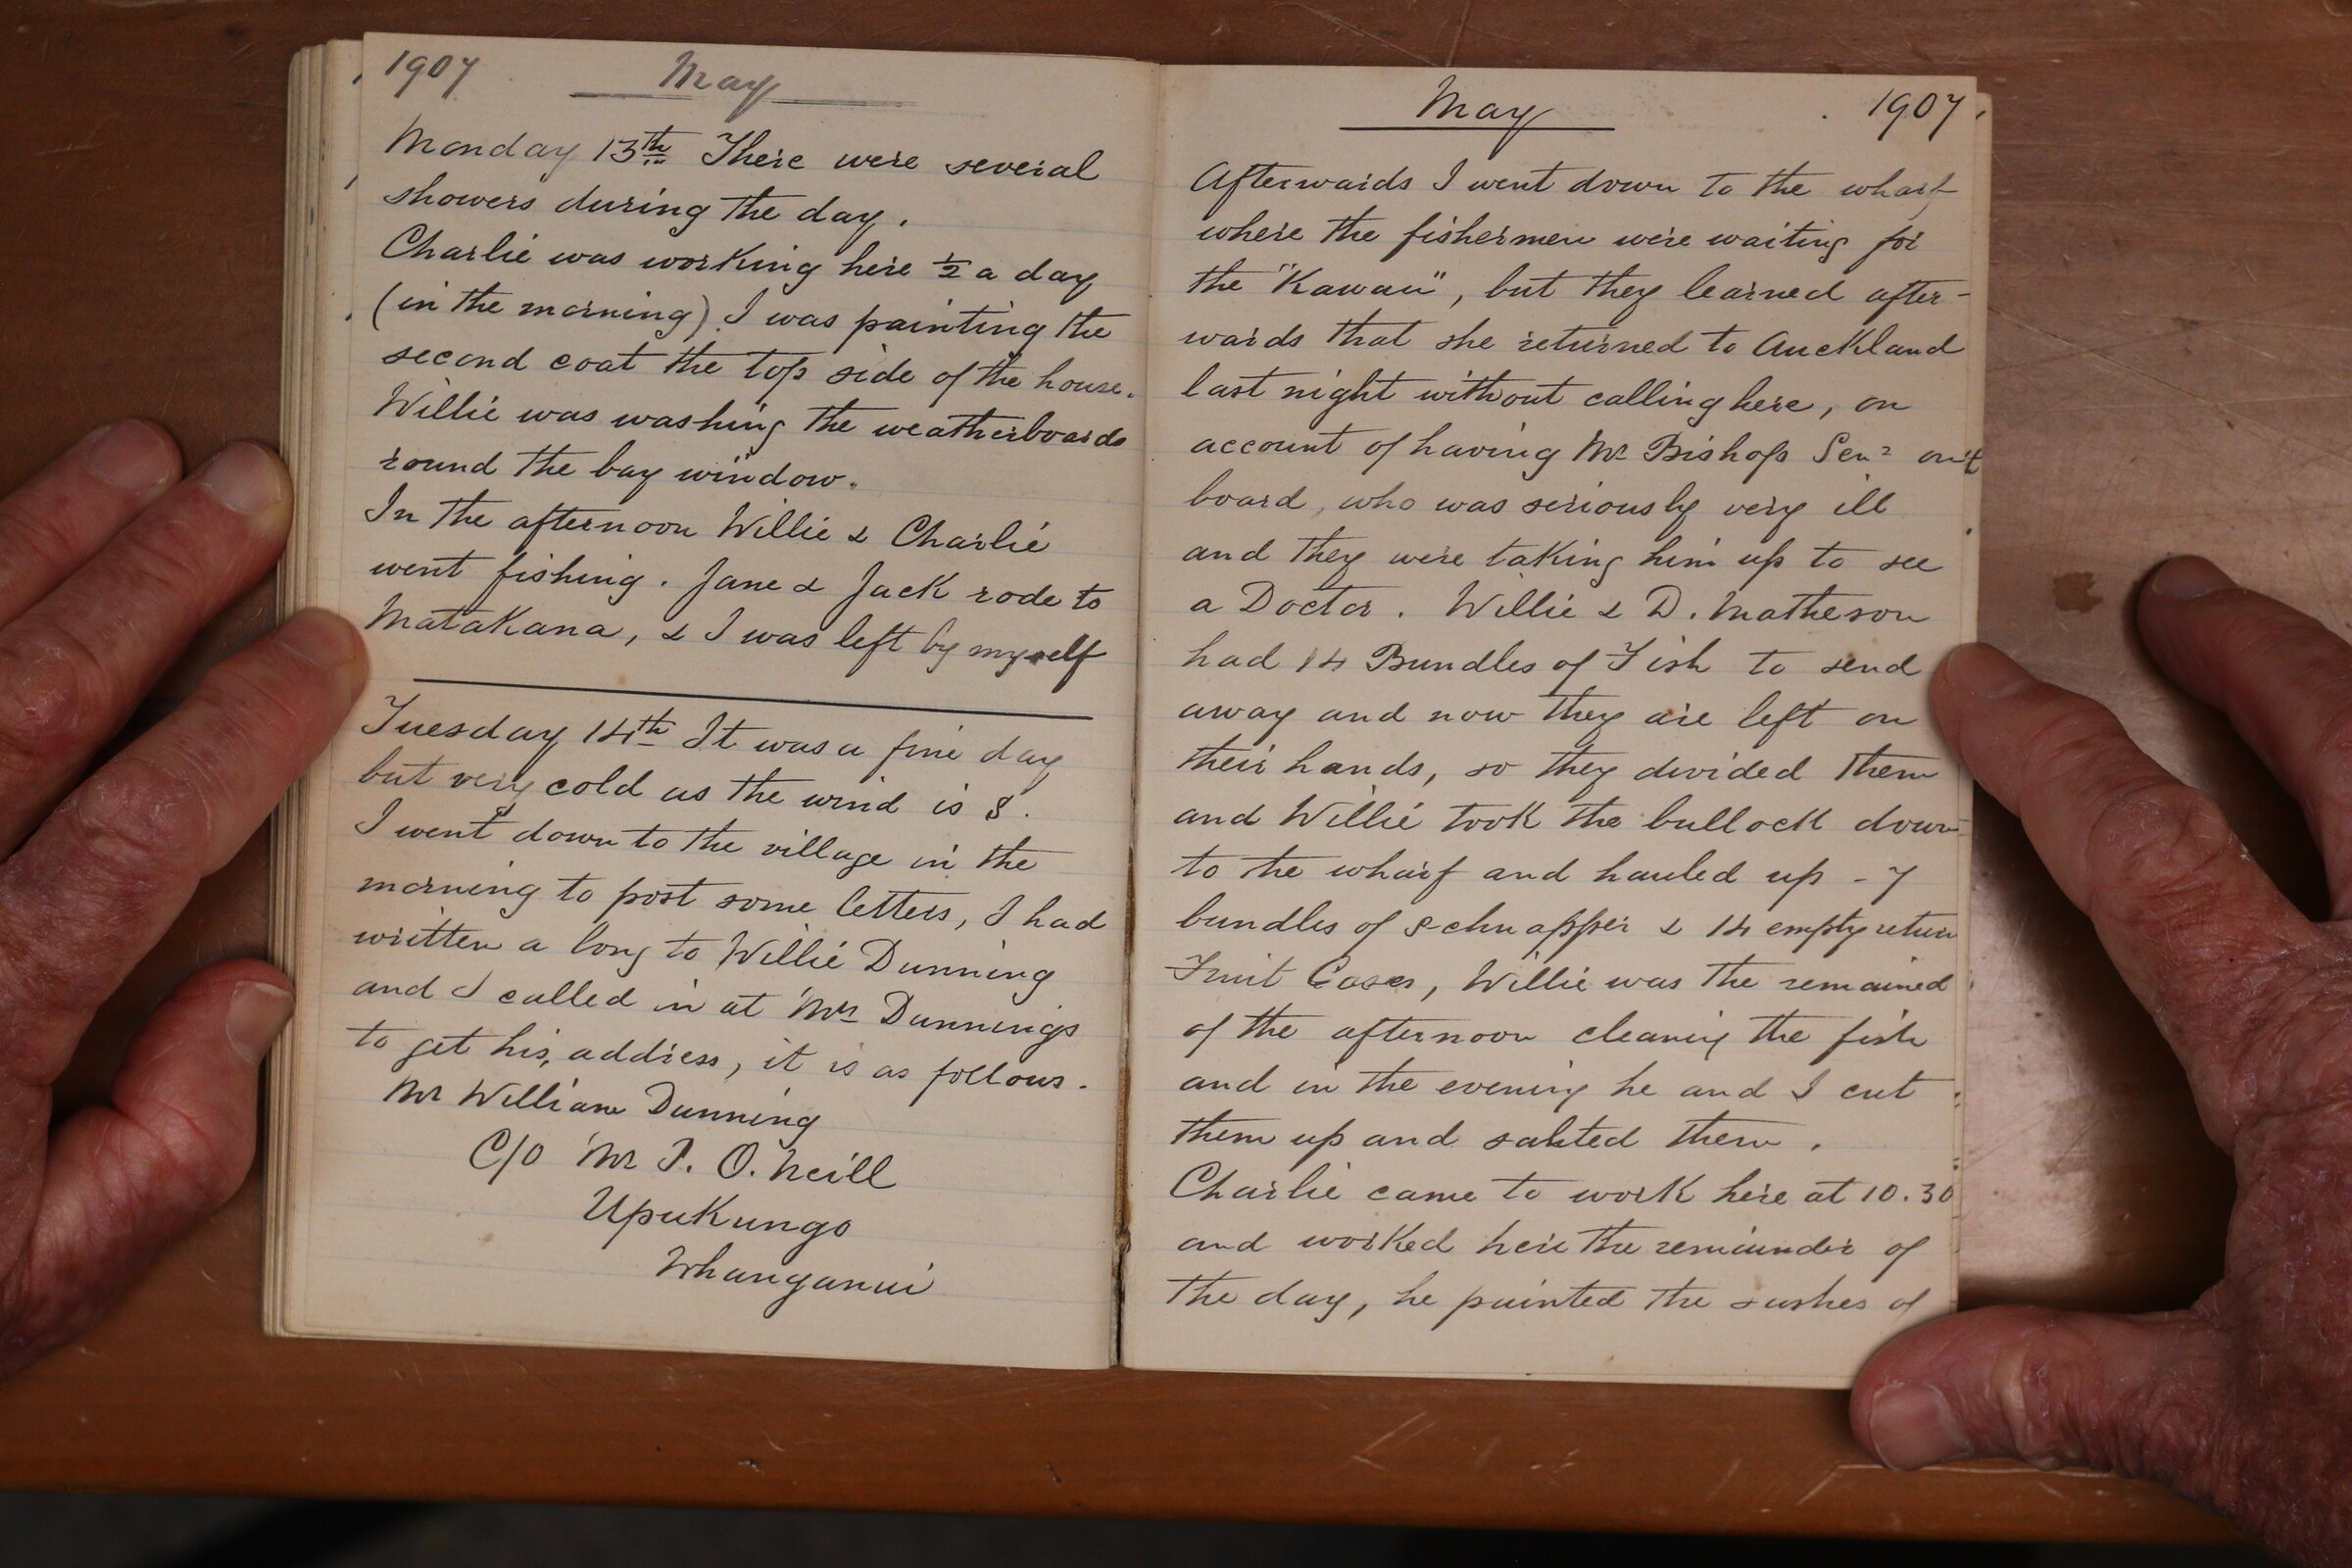 1907 May
Monday 13th There were several
showers during the day.
Charlie was working here ½ a day
(in the morning). I was painting the
second coat the top side of the house.
Willie was washing the weatherboards
round the bay window.
In the afternoon Willie & Charlie
went fishing. Jane & Jack rode to
Matakana, & I was left by myself
Tuesday 14th It was a fine day
but very cold as the wind is S.
I went down to the village in the
morning to post some letters, I had
written a long to Willie Dunning
and I called in at Mrs Dunnings
to get his, address, it is as follows.
Mr William Dunning
C/O Mr P. O. Neill
Upukungo
Whanganui
May 1907.
Afterwards I went down to the wharf
where the fishermen were waiting for
the "Kawau", but they learned after-
wards that she returned to Auckland
last night without calling here, on
account of having Mr Bishop Senr on
board, who was seriously very ill
and they were taking him up to see
a Doctor. Willie & D. Matheson
had 14 Bundles of Fish to send
away and now they are left on
their hands, so they divided them
and Willie took the bullock down
to the wharf and hauled up - 7
bundles of Schnapper & 14 empty return
Fruit Cases, Willie was the remained
of the afternoon cleaning the fish
and in the evening he and I cut
them up and salted them.
Charlie came to work here at 10.30
and worked here the remainder of
the day, he painted the sashes of